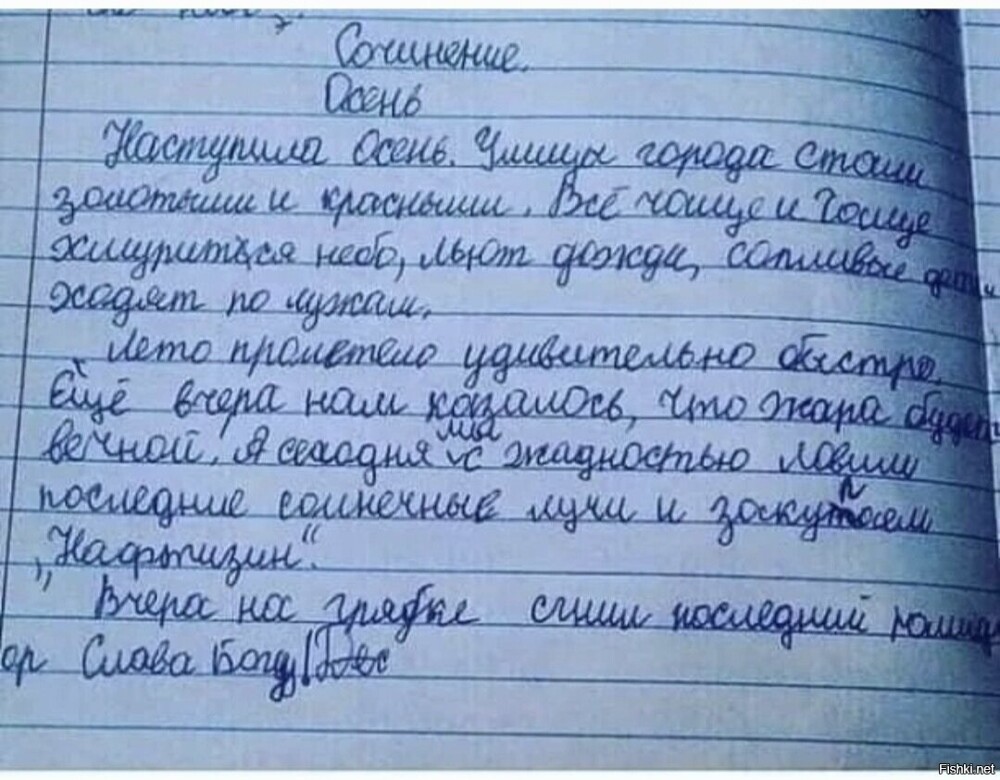 Сочинение.
Осень
Наступила Осень. Улицы города стали
золотыми и красными. Всё чаще и чаще
хмурится небо, льют дожди, сопливые дети
ходят по лужам.
Лето пролетело удивительно быстро.
Ещё вчера нам казалось, что жара будет
вечной. А сегодня мы с жадностью ловим
последние солнечные лучи и закупаем
„Нафтизин“.
Вчера на грядке сгнил последний помид
ор Слава Богу!
Fishki.net